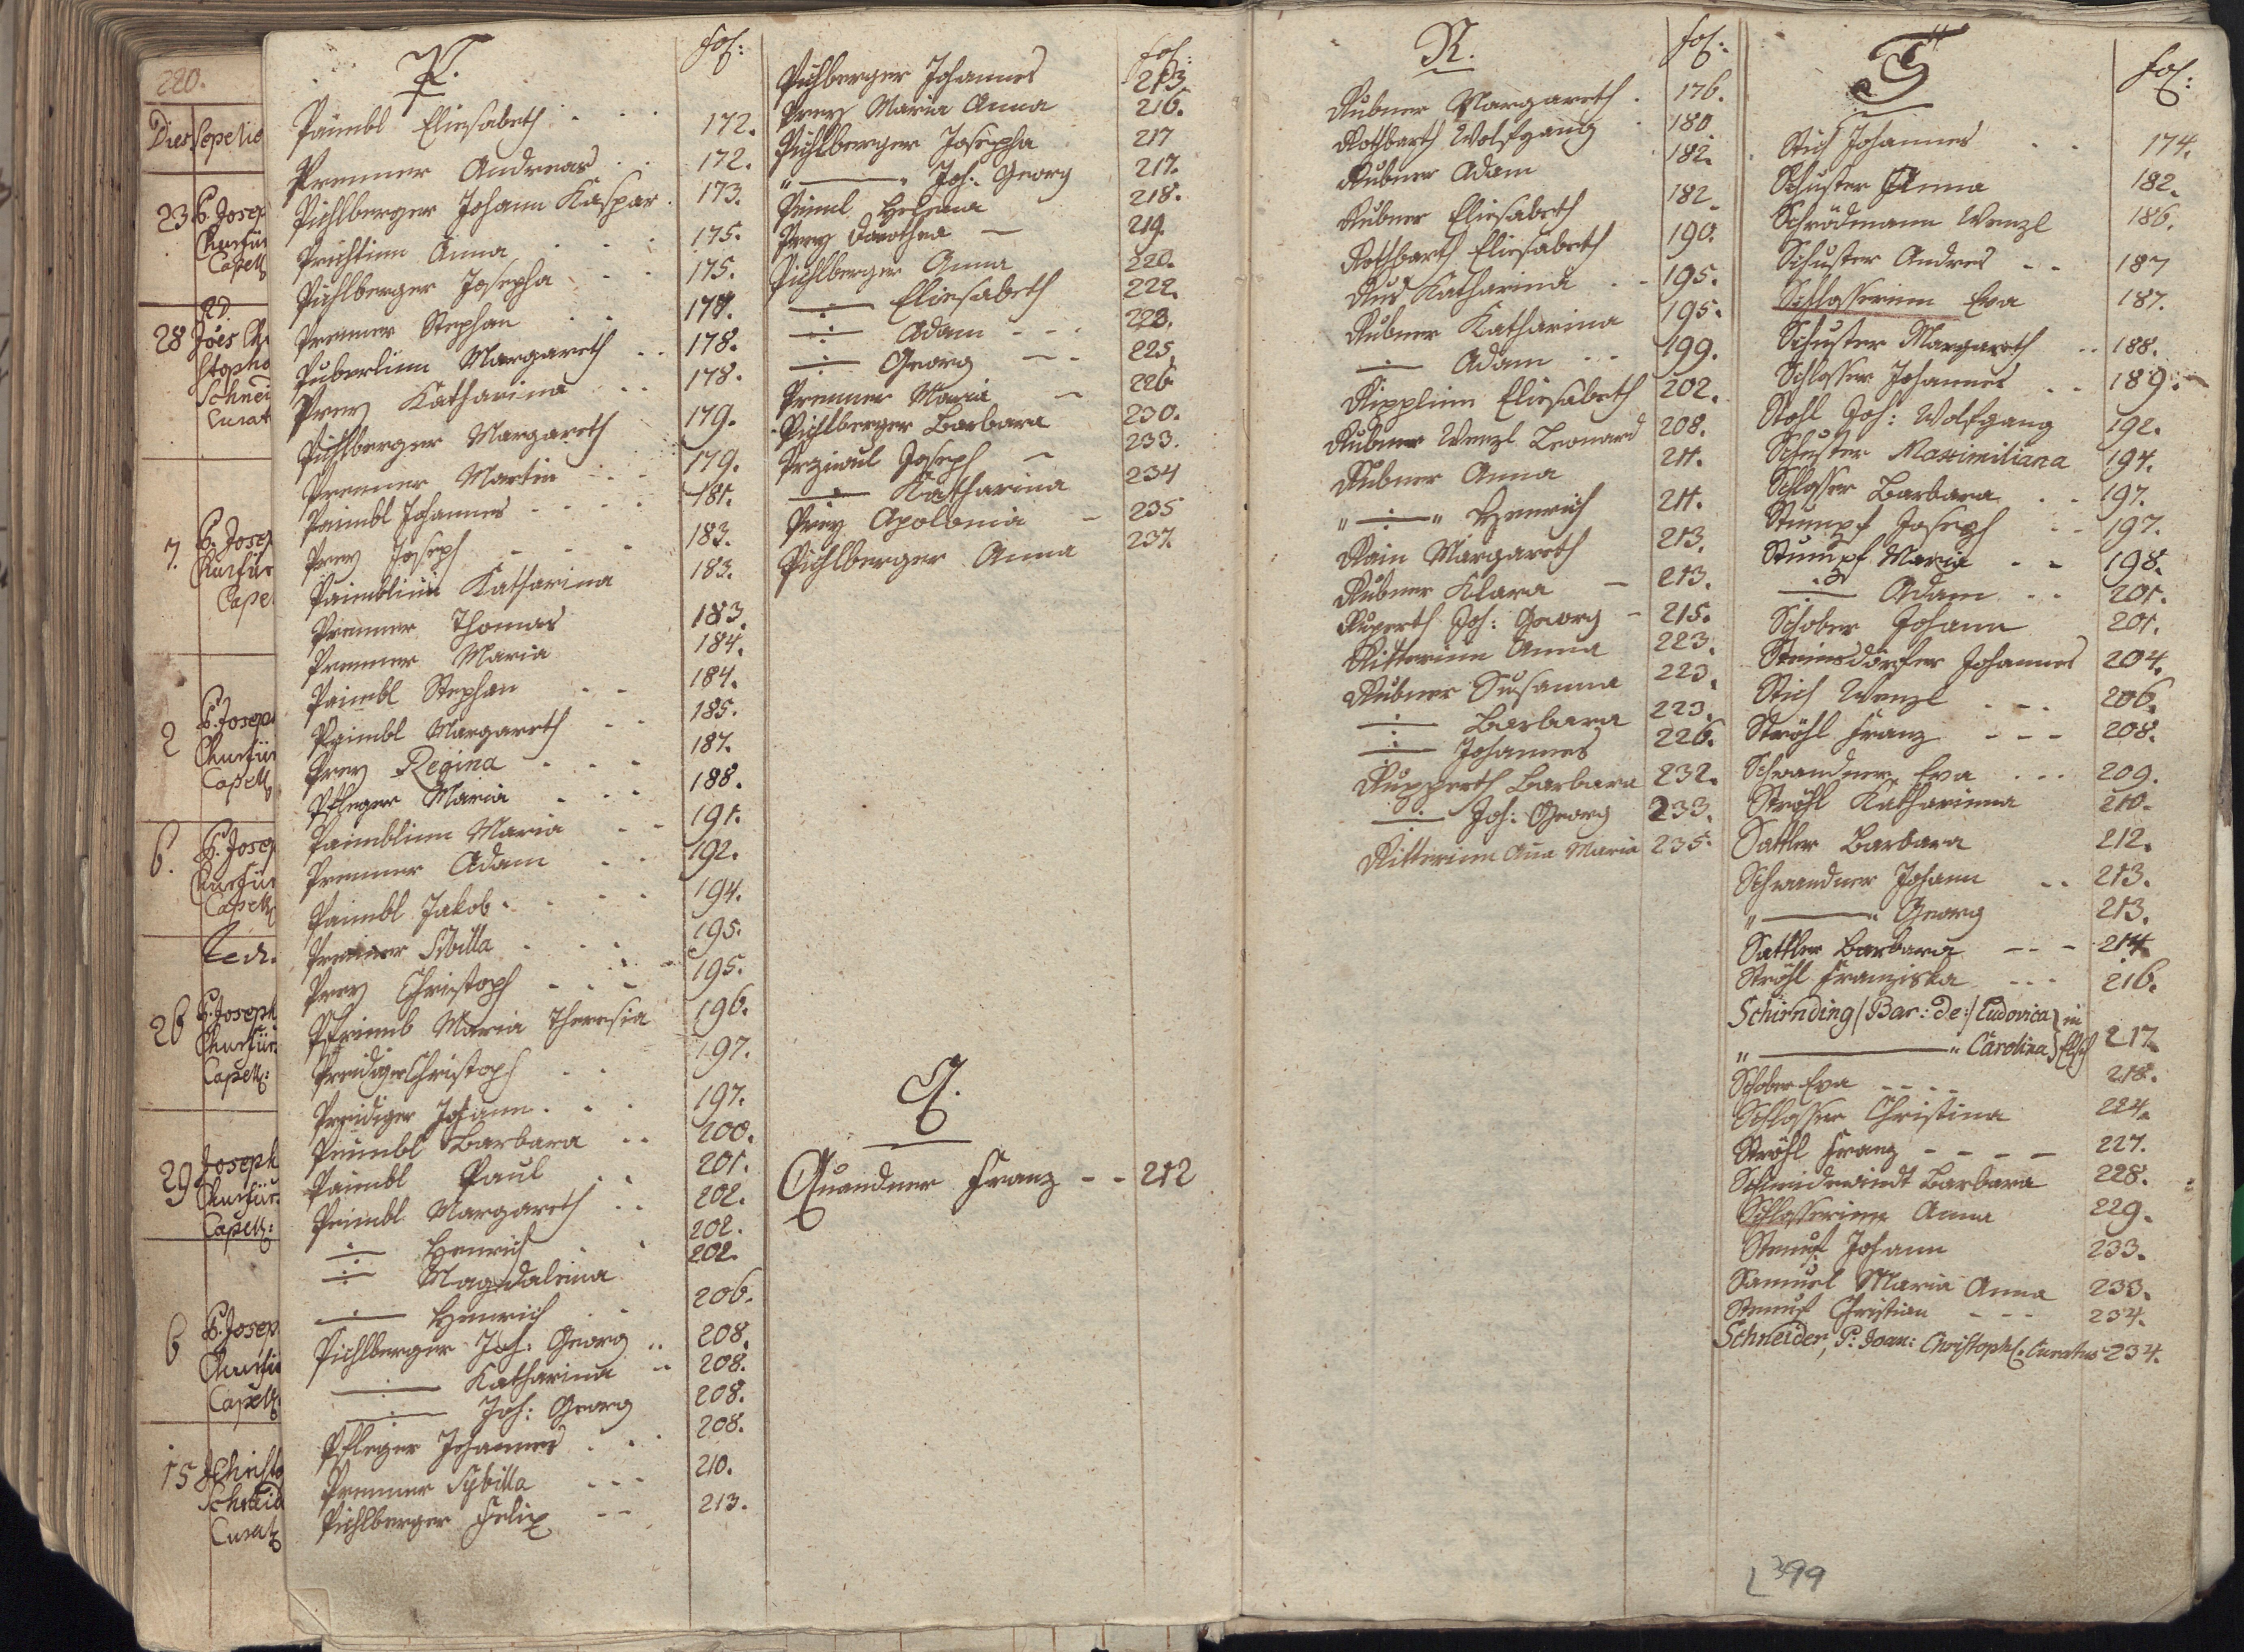 220.
Dies Sepelie
23 P. Josep
Churfür
Capell
28 Jões Chr
Stopho
Schnei
Curat
7. P. Josep
Churfür
Cape
2 P. Joseph
Churfür
Capell
6. P. Josep
Churfür
Capell
26 P. Joseph
Churfür
Capell:
29 Joseph
Churfür
Capell:
6 P. Josep
Churfür
Capell
15 Christo
Schneid
Curat
P. fol:
Paimbl Eliesabeth 172.
Premmer Andreas 172.
Pichlberger Johann Kaspar. 173.
Prichtinn Anna 175.
Pichlberger Josepha 175.
Premmer Stephan 177.
Puberlinn Margareth 178.
Prey Katharina 178.
Pichlberger Margareth 179.
Premmer Martin 179.
Paimbl Johannes 181.
Prey Joseph 183.
Paimblinn Katharina 183.
Premmer Thomas 183.
Premmer Maria 184.
Paimbl Stephan 184.
Paimbl Margareth 185.
Prey Regina 187.
Pfleger Maria 188.
Paimblinn Maria 191.
Premmer Adam 192.
Paimbl Jakob 194.
Premmer Sibilla 195.
Prey Christoph 195.
Pfrimb Maria Theresia 196.
Preidiger Christoph 197.
Preidiger Johann 197.
Peimbl Barbara 200.
Paimbl Paul 201.
Peimbl Margareth 202.
—:— Henrich 202.
—:— Magdalena 202.
—:— Henrich 206.
Pichlberger Joh: Georg 208.
—:— Katharina 208.
—:— Joh: Georg 208.
Pfleger Johannes 208.
Premmer Sybilla 210.
Pichlberger Felix 213.
fol:
Pichlberger Johannes 213
Prey Maria Anna 216.
Pichlberger Josepha 217
"———" Joh: Georg 217.
Peiml Helena 218.
Prey Dorothea — 219.
Pichlberger Anna 220.
—:— Eliesabeth 222.
—:— Adam 223.
—:— Georg 225.
Premmer Maria 226
Pichlberger Barbara 230.
Joseph 233.
—:— Katharina 234
Prey Apolonia 235
Pichlberger Anna 237.
Q.
Quandner Franz - - 212
R. fol:
Rubner Margareth. 176.
Rothbarth Wolfgang 180
Rubner Adam 182.
Rubner Eliesabeth 182.
Rothbarth Eliesabeth 190.
Rus Katharina 195.
Rubner Katharina 195.
—:— Adam 199.
Ripplinn Eliesabeth 202.
Rubner Wenzl Leonard 208.
Rubner Anna 211.
"—:—" Henrich 211.
Rain Margareth 213.
Rubner Klara — 213.
Ruperth Joh: Georg - 215.
Ritterinn Anna 223.
Rubner Susanna 223.
—:— Barbara 223.
—:— Johannes 226.
Rupperth Barbara 232.
—:— Joh: Georg 233.
Ritterinn Ana Maria 235.
S fol:
Stich Johannes 174.
Schuster Anna 182.
Schrödmann Wenzl 186.
Schuster Andres - - 187
Schlosserinn Eva 187.
Schuster Margareth 188.
Schlosser Johannes 189.
Stohl Joh: Wolfgang 192.
Schuster Maximiliana 194.
Schlosser Barbara 197.
Stumpf Joseph 197.
Stumpf Maria 198.
—:— Adam 201.
Schober Johann 201.
Steinsdörfer Johannes 204.
Stich Wenzl 206.
Ströhl Franz - - - 208.
Schwandner Eva 209.
Ströhl Katharinna 210.
Sattler Barbara 212.
Schwandner Johann 213.
"———" Georg 213.
Sattler Barbara - - - 214
Ströhl Franziska 216.
Schirnding /Bar: de:/ Ludovica } in
"———" Carolina } 217.
Schober Eva 218.
Schlosser Christina 224.
Ströhl Franz - - - - 227.
Schneidewindt Barbara 228.
Schlosserinn Anna 229.
Johann 233.
Samuel Maria Anna 233.
Christian - - - 234.
Schneider, P: Joan: Christoph: Curatus 234.
399